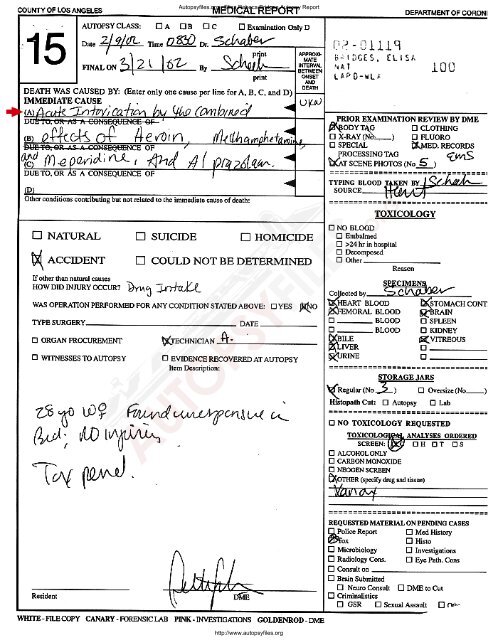 Autopsyfiles.org
COUNTY OF LOS ANGELES MEDICAL REPORT DEPARTMENT OF CORONE
15
AUTOPSY CLASS: ☐ A ☐ B ☐ C ☐ Examination Only D
Date 2/9/02 Time 0830 Dr. Schaber
print
FINAL ON 3/21/02 By Scheeh
print
APPROXIMATE INTERVAL BETWEEN ONSET AND DEATH
02-01119
BRIDGES, ELISA
NAT 100
LAPD-WLA
DEATH WAS CAUSED BY: (Enter only one cause per line for A, B, C, and D)
IMMEDIATE CAUSE
(A) Acute Intoxication by the combined UKN
DUE TO, OR AS A CONSEQUENCE OF
(B) effects of Heroin, Methamphetamine,
DUE TO, OR AS A CONSEQUENCE OF
(C) and Meperidine, And Alprazolam.
DUE TO, OR AS A CONSEQUENCE OF
(D)
Other conditions contributing but not related to the immediate cause of death:
☐ NATURAL ☐ SUICIDE ☐ HOMICIDE
☒ ACCIDENT ☐ COULD NOT BE DETERMINED
If other than natural causes
HOW DID INJURY OCCUR? Drug Intake
WAS OPERATION PERFORMED FOR ANY CONDITION STATED ABOVE: ☐ YES ☒ NO
TYPE SURGERY DATE
☐ ORGAN PROCUREMENT ☒ TECHNICIAN A.
☐ WITNESSES TO AUTOPSY ☐ EVIDENCE RECOVERED AT AUTOPSY
Item Description:
28 yo W♀ Found unresponsive in
Bed; NO injuries
Tox panel.
Resident DME
PRIOR EXAMINATION REVIEW BY DME
☒ BODY TAG ☐ CLOTHING
☐ X-RAY (No. ) ☐ FLUORO
☐ SPECIAL ☒ MED. RECORDS
PROCESSING TAG EMS
☒ AT SCENE PHOTOS (No 5 )
TYPING BLOOD TAKEN BY
SOURCE Heart
TOXICOLOGY
☐ NO BLOOD
☐ Embalmed
☐ >24 hr in hospital
☐ Decomposed
☐ Other
Reason
SPECIMENS
Collected by Schaber
☒ HEART BLOOD ☒ STOMACH CONT
☒ FEMORAL BLOOD ☒ BRAIN
☐ BLOOD ☐ SPLEEN
☐ BLOOD ☐ KIDNEY
☒ BILE ☒ VITREOUS
☒ LIVER ☐
☒ URINE ☐
STORAGE JARS
☒ Regular (No 3 ) ☐ Oversize (No. )
Histopath Cut: ☐ Autopsy ☐ Lab
☐ NO TOXICOLOGY REQUESTED
TOXICOLOGICAL ANALYSES ORDERED
SCREEN: ☒ C ☐ H ☐ T ☐ S
☐ ALCOHOL ONLY
☐ CARBON MONOXIDE
☐ NEOGEN SCREEN
☒ OTHER (specify drug and tissue)
Xanax
REQUESTED MATERIAL ON PENDING CASES
☐ Police Report ☐ Med History
☒ Tox ☐ Histo
☐ Microbiology ☐ Investigations
☐ Radiology Cons. ☐ Eye Path. Cons
☐ Consult on
☐ Brain Submitted
☐ Neuro Consult ☐ DME to Cut
☐ Criminalistics
☐ GSR ☐ Sexual Assault ☐
WHITE - FILE COPY CANARY - FORENSIC LAB PINK - INVESTIGATIONS GOLDENROD - DME
http://www.autopsyfiles.org
AUTOPSYFILES